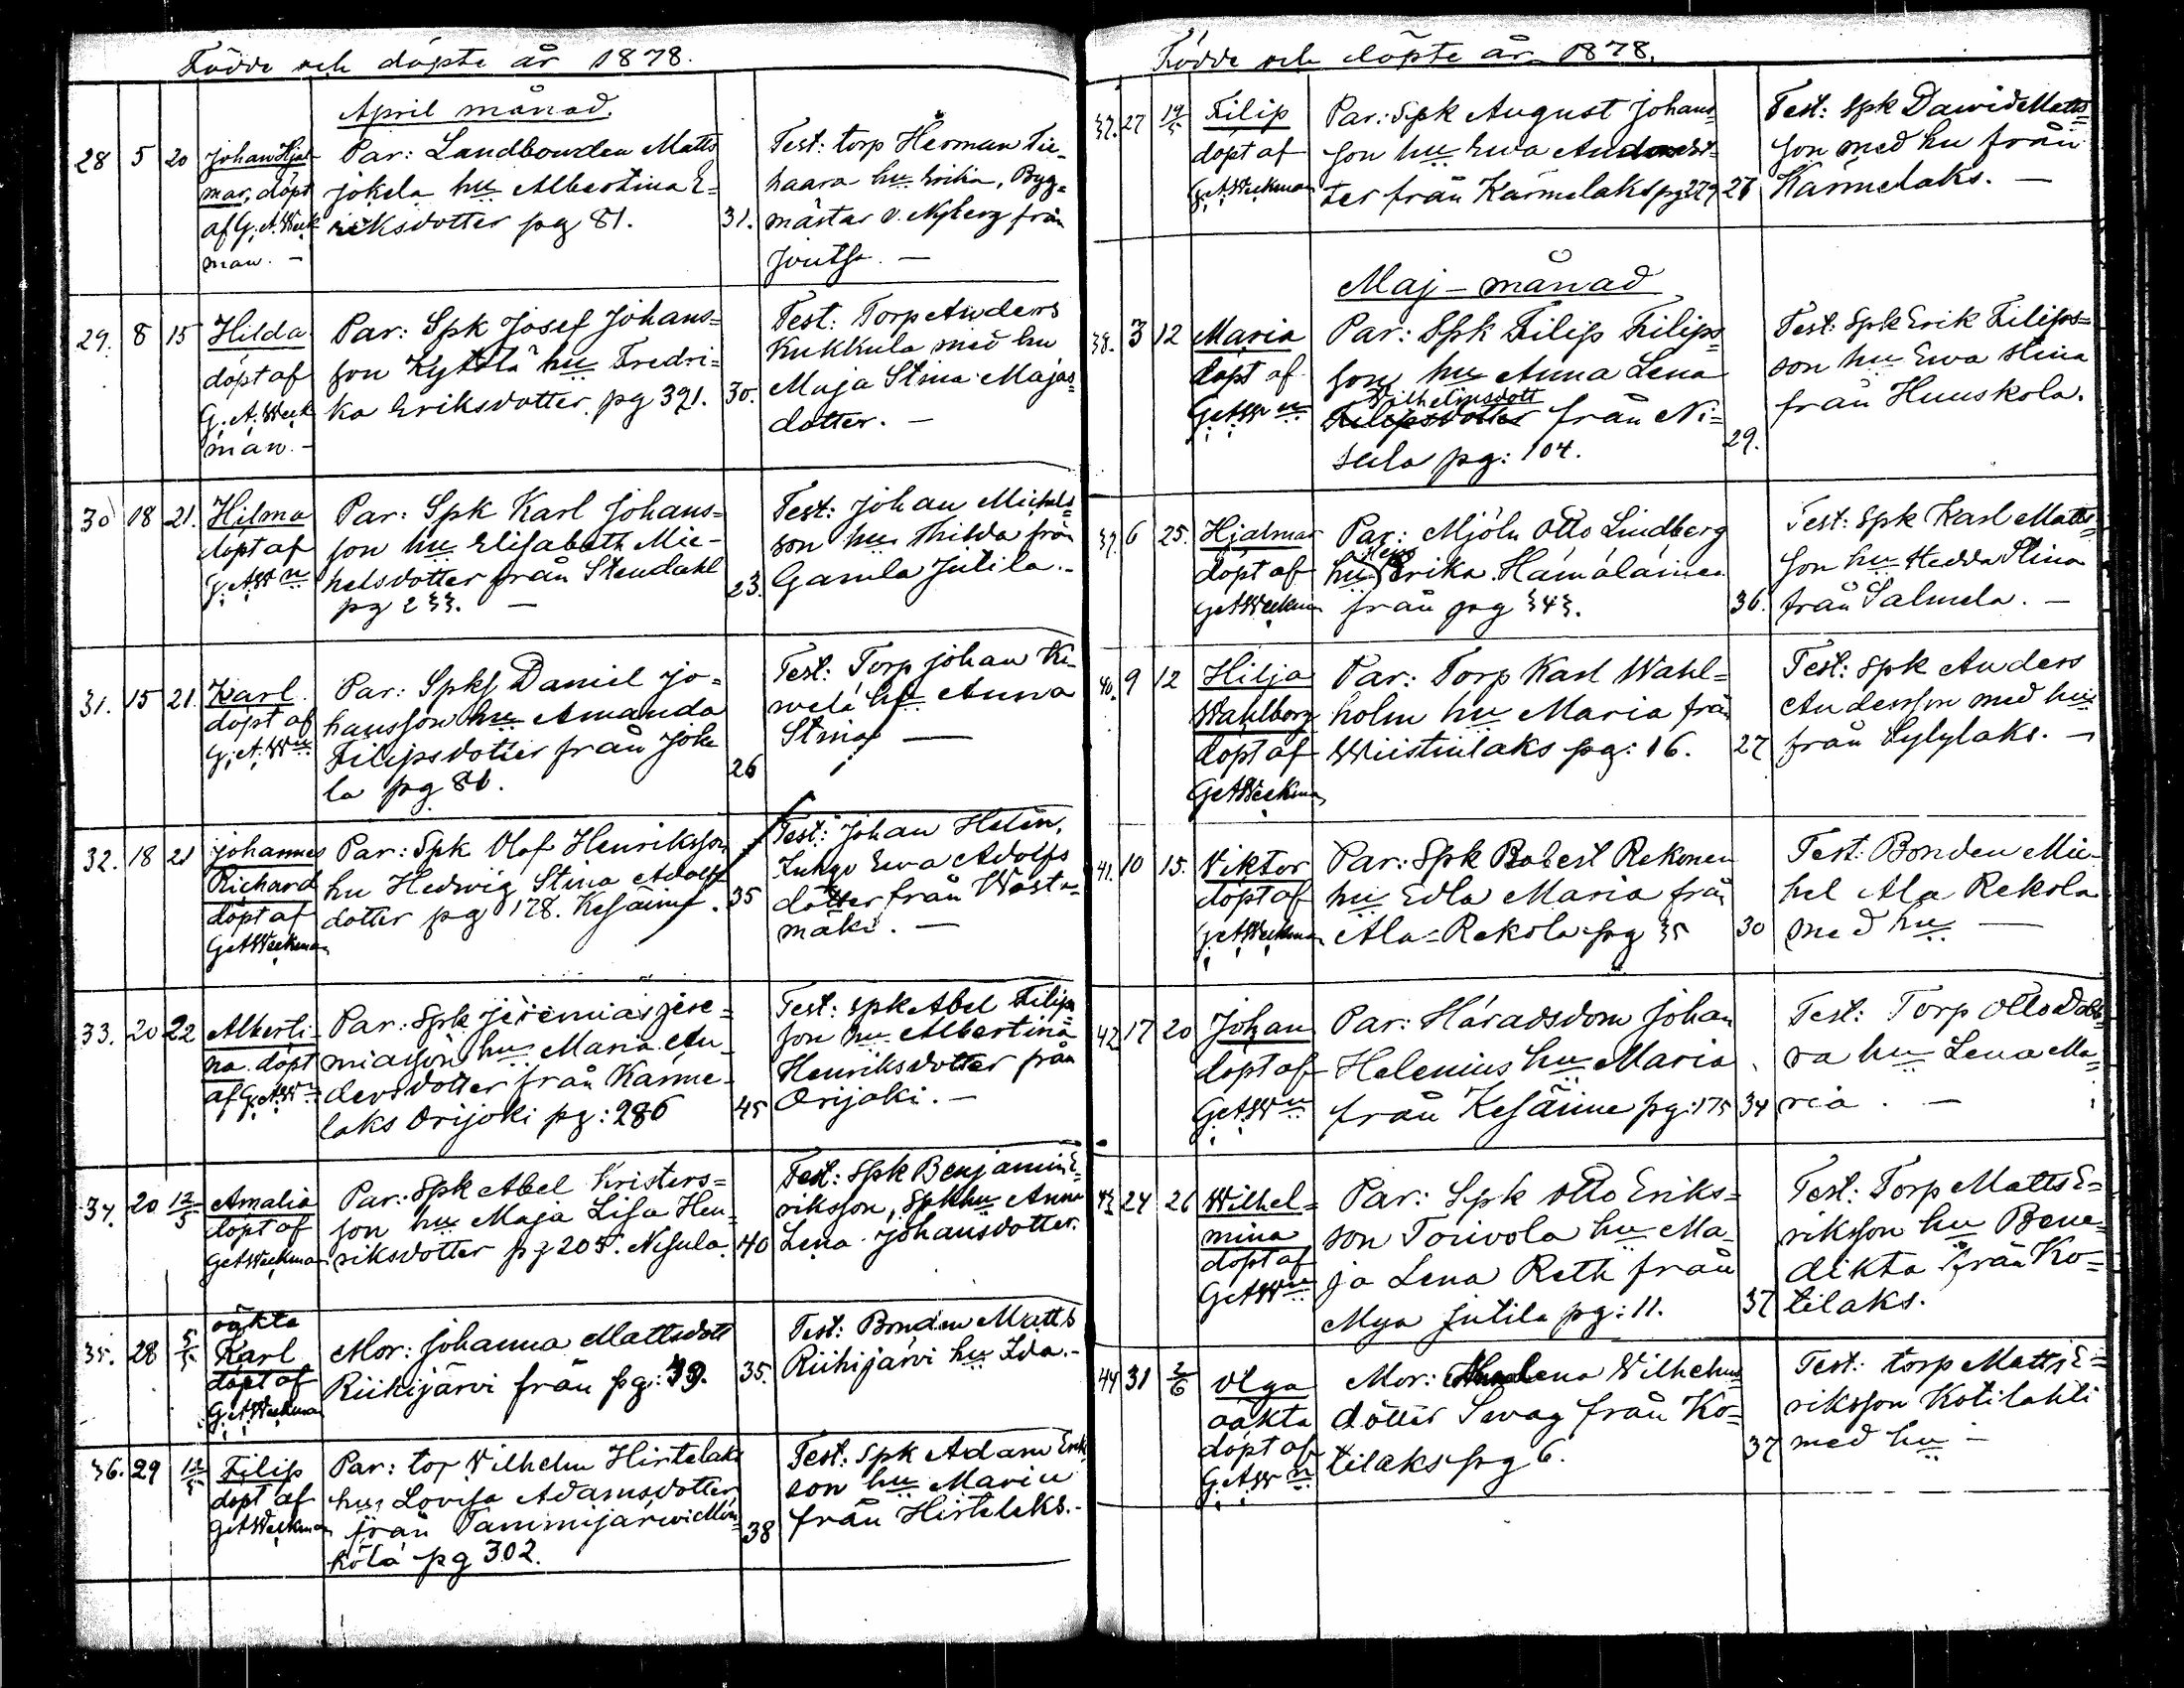 Födde och döpte år 1878.
April månad.
28 5 20 Johan Hjal-
mar, döpt
af G. A. Week
man. –
Par: Landbonden Matts
Jokela hu Albertina E=
riksdotter pag 81.
31.
Test: torp Herman Tie-
haara hu Erika, Byg=
mästar v. Nyberg från
Joutsa. –
29. 8 15 Hilda
döpt af
G. A. Week
man. –
Par: Spk Josef Johans=
son Kytölä hu Fredri=
ka Eriksdotter. pg 391.
30.
Test: Torp Anders
Kukkula med hu
Maja Stina Majas=
dotter. –
30 18 21. Hilma
döpt af
G. A. W n
Par: Spk Karl Johans=
son hu Elisabeth Mic-
helsdotter från Stendahl
pg 233. –
23.
Test: Johan Michels=
son hu Thilda från
Gamla Jutila. –
31. 15 21. Karl.
döpt af
G. A. W n
Par: Spk Daniel Jo=
hansson hu Amanda
Filipsdotter från Joke
la pg 81.
26
Test: Torp Johan Ki-
welä hu Anna
Stina –
32. 18 21 Johannes
Richard
döpt af
G A Weekman
Par: Spk Olof Henriksson
hu Hedwig Stina Adolfs
dotter pg 178. Kesäinif.
35
Test: Johan Helén,
Inhys Ewa Adolfs
dotter från Wast=
mäki. –
33. 20 22 Alberti-
na. döpt
af G. A. W n
Par: Spk Jeremias Jere=
miasson hu Maria An-
dersdotter från Karme-
laks Orijoki pg: 286
45
Test: Spk Abel Filips
son hu Albertina
Henriksdotter från
Orijoki. –
34. 20 12/5 Amalia
döpt af
G A Weekman
Par: Spk Abel Kristers=
son hu Maja Lisa Hen-
riksdotter pg 205. Nisula.
40
Test: Spk Benjamin E=
riksson, Spk hu Anna
Lena Johansdotter.
35. 28 5/5 oäkta
Karl
döpt af
G. A Weekman
Mor: Johanna Mattsdott
Riihijärvi från pg: 39.
35.
Test: Bonden Matts
Riihijärvi hu Ida. –
36. 29 12/5 Filip
döpt af
G A Weekman
Par: torp Vilhelm Hirtelaks
hu Lovisa Adamsdotter
från Tammijärvi Män=
kölä pg 302.
38
Test: Spk Adam Eriks
son hu Maria
från Hirtelaks. –
Födde och döpte år 1878.
37. 27 19/5 Filip
döpt af
G. A Weekman
Par: Spk August Johans=
son hu Ewa Andersdot=
ter från Karmelaks pg 279
28
Test: Spk Dawid Matts=
son med hu från
Karmelaks. –
Maj – månad
38. 3 12 Maria
döpt af
G A W n
Par: Spk Filip Filips=
son hu Anna Lena
Vilhelmsdott
Filipsdotter från Ni=
sula pg: 104.
29.
Test: Spk Erik Filips=
son hu Ewa Stina
från Huuskola.
39. 6 25. Hjalmar
döpt af
G A Weekman
Par: Mjöln Otto Lindberg
hu Erika Hämäläinen
från pag 343.
36.
Test: Spk Karl Matts=
son hu Hedda Stina
från Salmela. –
40. 9 12 Hilja
Wahlborg
döpt af
G A Weekman
Par: Torp Karl Wahl=
holm hu Maria från
Wiistinlaks pg: 16.
27
Test: Spk Anders
Andersson med hu
från Sylylaks. –
41. 10 15. Viktor
döpt af
G. A Weekman
Par: Spk Robert Rekonen
hu Edla Maria från
Ala=Rekola pag 35
30
Test: Bonden Mic-
hel Ala Rekola
med hu –
42 17 20 Johan
döpt af
G A W n
Par: Häradsdom Johan
Helenius hu Maria
från Kesäinne pg: 175
34
Test: Torp Otto
ra hu Lena Ma=
ria. –
43 24 26 Wilhel=
mina
döpt af
G A W n
Par: Spk Otto Eriks=
son Toivola hu Ma-
ja Lena Reth från
Mya Jutila pg: 11.
37
Test: Torp Matts E=
riksson hu Bene=
dikta från Ko=
tilaks.
44 31 2/6 Olga
oäkta
döpt af
G. A W n
Mor: Lena Vilhelms
dotter Swag från Ko=
tilaks pg 6.
37
Test: torp Matts E=
riksson Kotilahti
med hu –